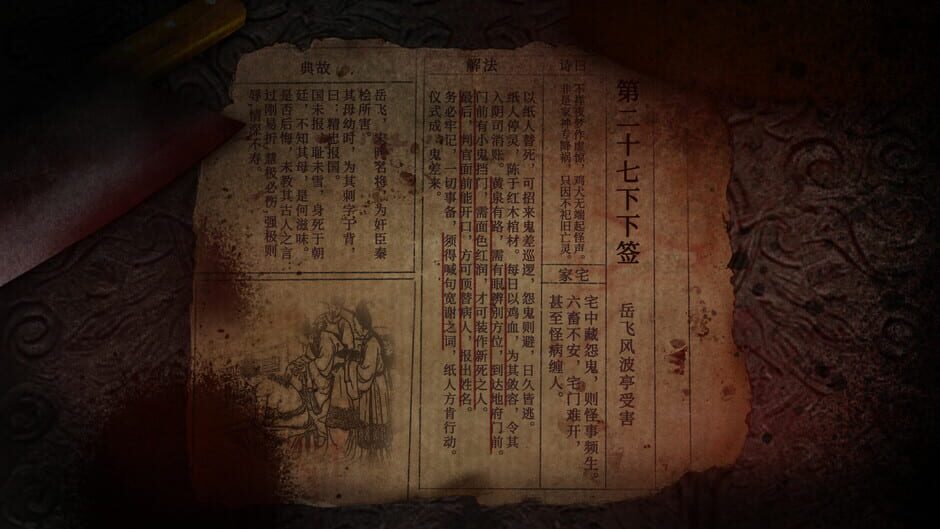 第二十七下下签
岳飞风波亭受害
诗曰
不祥夜梦作虚惊,鸡犬无端起怪声。
非是家神专降祸,只因不祀旧亡灵。
家宅
宅中藏怨鬼,则怪事频生。
六畜不安,宅门难开,
甚至怪病缠人。
解法
以纸人替死,可招来鬼差巡逻,怨鬼则避,日久皆逃。
纸人停灵,陈于红木棺材。每日以鸡血,为其敛容,令其
入阴司消账。黄泉有路,需有眼辨别方位,到达地府门前。
门前有小鬼挡门,需面色红润,才可装作新死之人。
最后,判官面前能开口,方可顶替病人,报出姓名。
务必牢记,一切事备,须得喊句宽谢之词,纸人方肯行动。
仪式成,鬼差来。
典故
岳飞,宋朝名将,为奸臣秦
桧所害。
其母幼时,为其刺字于背,
曰:精忠报国。
国未报,耻未雪,身死于朝
廷,不知其母,是何滋味。
是否后悔,未教其古人之言
过刚易折,慧极必伤,强极则
辱,情深不寿。